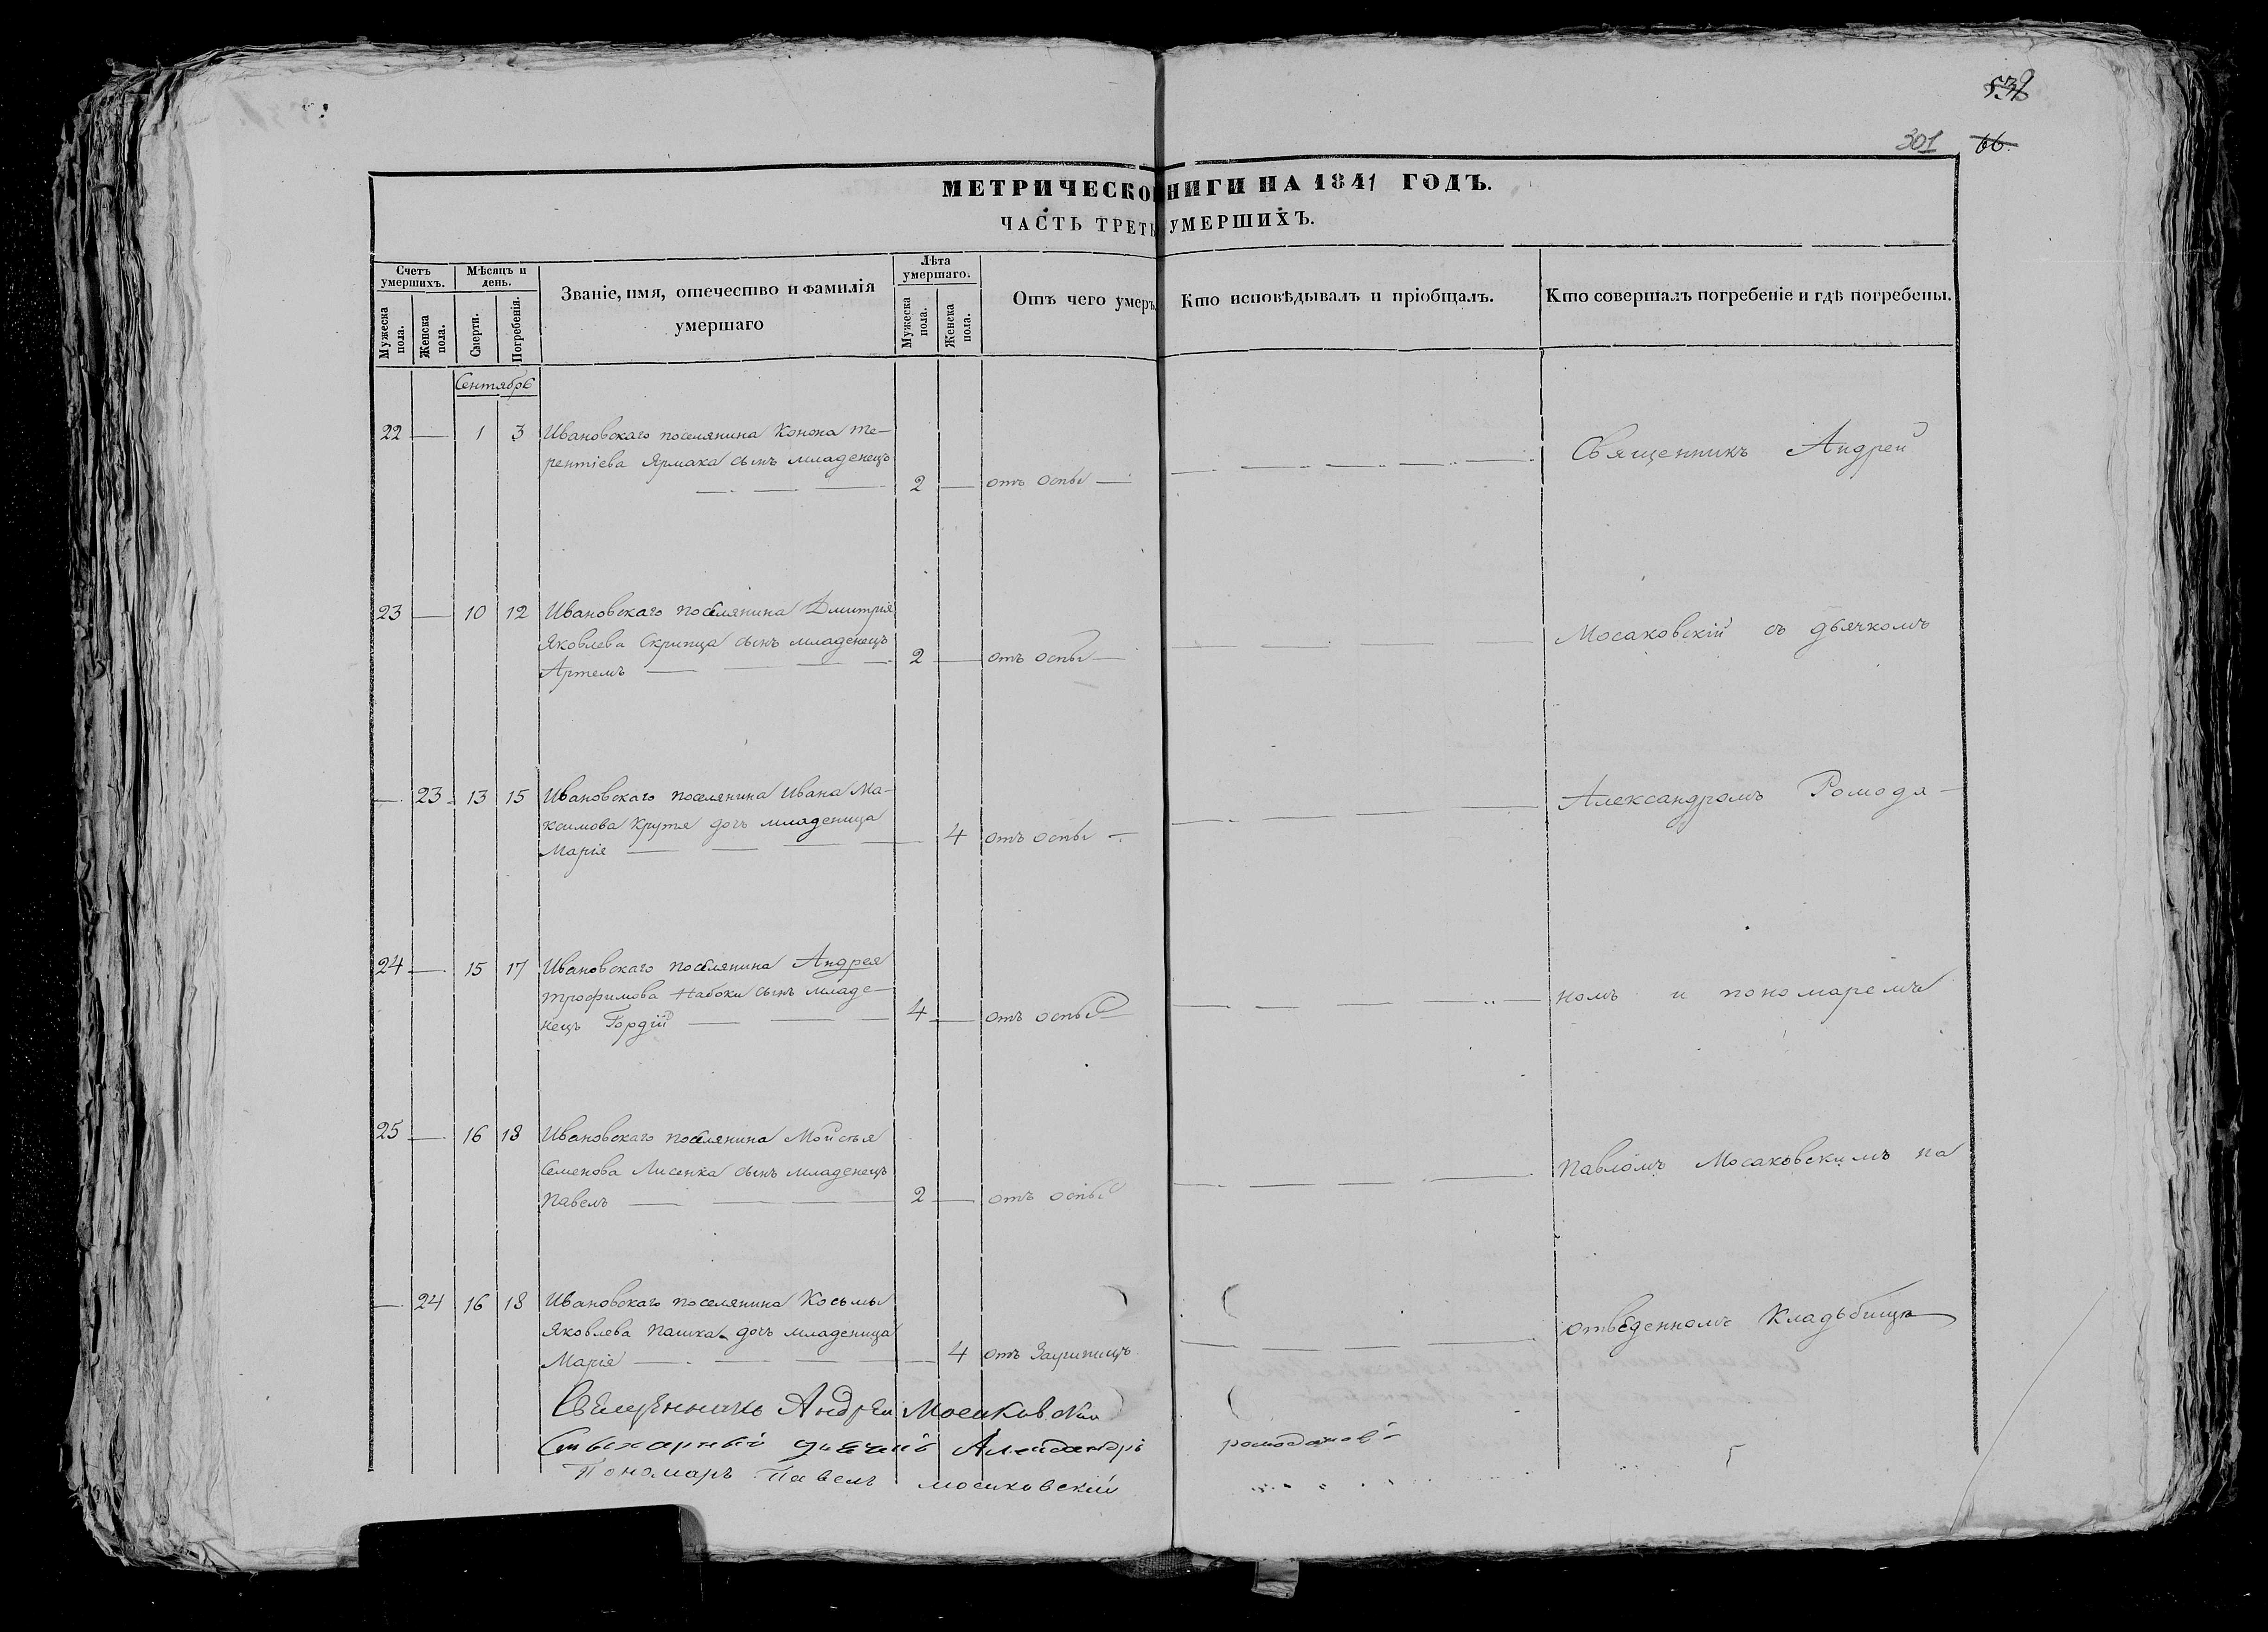 301
66.
МЕТРИЧЕСКО НИГИ НА 1841 ГОДЪ.
ЧАСТЬ ТРЕТЬ УМЕРШИХЪ.
Счетъ умершихъ.
Мужеска пола.
Женска пола.
Мѣсяцъ и день.
Смерти.
Погребенія.
Званіе, имя, отечество и фамилія
умершаго
Лѣта умершаго.
Мужеска пола.
Женска пола.
Отъ чего умеръ.
Кто исповѣдывалъ и пріобщалъ.
Кто совершалъ погребеніе и гдѣ погребены.
Сентябрь
22 — 1 3 Ивановскаго поселянина Конона Те-
рентіева Ярмака сынъ младенецъ
2 — отъ оспы —
Священникъ Андрей
23 — 10 12 Ивановскаго поселянина Дмитрія
Яковлева Скрипца сынъ младенецъ
Артемъ — 2 — отъ оспы —
Мосаковскій съ дьячкомъ
— 23 13 15 Ивановскаго поселянина Ивана Ма-
ксимова Крутя дочь младеница
Марія — 4 отъ оспы —
Александромъ Ромода-
24 — 15 17 Ивановскаго поселянина Андрея
Трофимова Набоки сынъ младе-
нецъ Гордій — 4 — отъ оспы
номъ и пономаремъ
25 — 16 18 Ивановскаго поселянина Мойсея
Семенова Лисенка сынъ младенецъ
Павелъ — 2 — отъ оспы
Павломъ Мосаковскимъ на
— 24 16 18 Ивановскаго поселянина Косьмы
Яковлева Пашка дочь младеница
Марія — 4 отъ
отведенномъ кладьбищѣ
Священникъ Андрей Мосаковскій
Стыхарный дьячокъ Александръ Ромодановъ
Пономарь Павелъ Мосаковскій